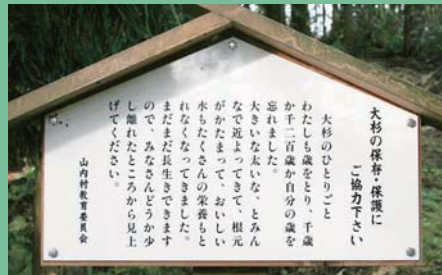 大杉の保存・保護に
ご協力下さい
大杉のひとりごと
わたしも歳をとり、千歳
か千二百歳か自分の歳を
忘れました。
大きいな太いな、とみん
なで近よってきて、根元
がかたまって、おいしい
水もたくさんの栄養もと
れなくなってきました。
まだまだ長生きできます
ので、みなさんどうか少
し離れたところから見上
げてください。
山内村教育委員会